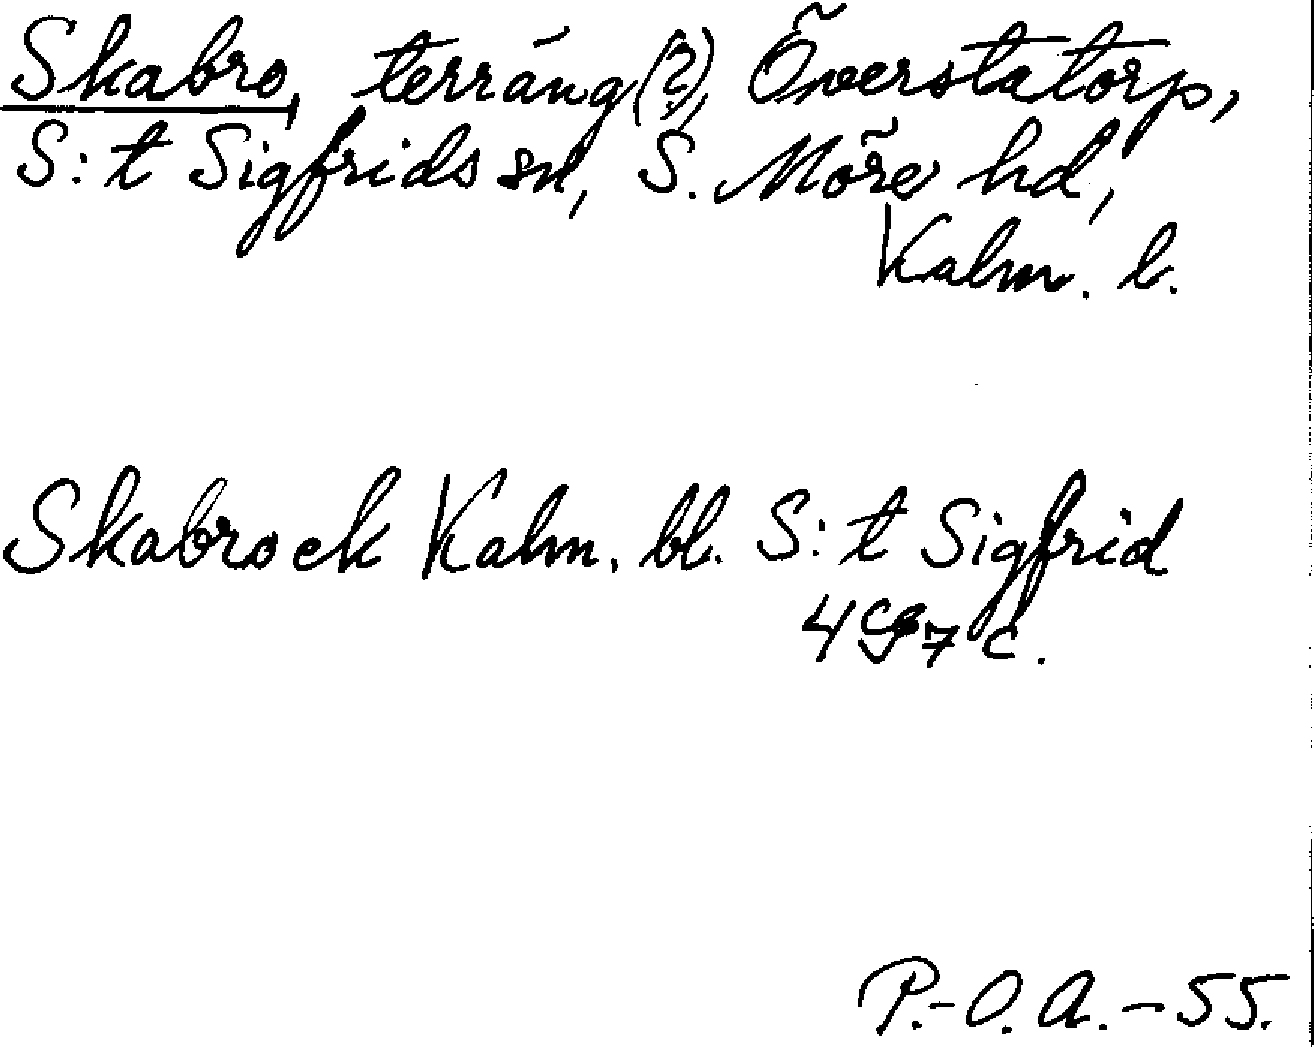 Skabro, terräng(?), Överstatorp,
S:t Sigfrids sn, S. Möre hd,
Kalm. l.
Skabro ek Kalm. bl. S:t Sigfrid
4 G 7 c.
P.-O.A.-55.